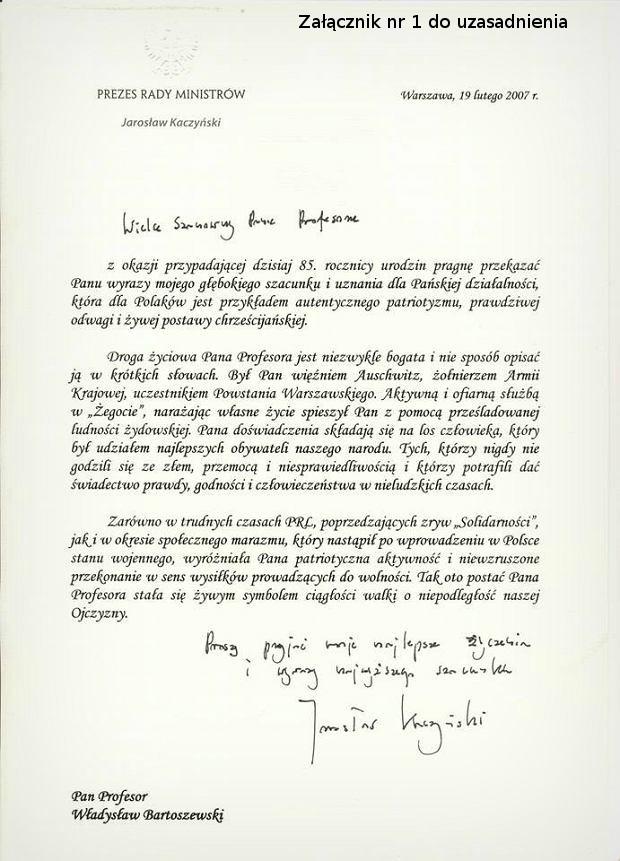 Załącznik nr 1 do uzasadnienia
PREZES RADY MINISTRÓW
Warszawa, 19 lutego 2007 r.
Jarosław Kaczyński
Wielce Szanowny Panie Profesorze
z okazji przypadającej dzisiaj 85. rocznicy urodzin pragnę przekazać
Panu wyrazy mojego głębokiego szacunku i uznania dla Pańskiej działalności,
która dla Polaków jest przykładem autentycznego patriotyzmu, prawdziwej
odwagi i żywej postawy chrześcijańskiej.
Droga życiowa Pana Profesora jest niezwykle bogata i nie sposób opisać
ją w krótkich słowach. Był Pan więźniem Auschwitz, żołnierzem Armii
Krajowej, uczestnikiem Powstania Warszawskiego. Aktywną i ofiarną służbą
w „Żegocie”, narażając własne życie spieszył Pan z pomocą prześladowanej
ludności żydowskiej. Pana doświadczenia składają się na los człowieka, który
był udziałem najlepszych obywateli naszego narodu. Tych, którzy nigdy nie
godzili się ze złem, przemocą i niesprawiedliwością i którzy potrafili dać
świadectwo prawdy, godności i człowieczeństwa w nieludzkich czasach.
Zarówno w trudnych czasach PRL, poprzedzających zryw „Solidarności”,
jak i w okresie społecznego marazmu, który nastąpił po wprowadzeniu w Polsce
stanu wojennego, wyróżniała Pana patriotyczna aktywność i niewzruszone
przekonanie w sens wysiłków prowadzących do wolności. Tak oto postać Pana
Profesora stała się żywym symbolem ciągłości walki o niepodległość naszej
Ojczyzny.
Proszę przyjąć moje najlepsze życzenia
i wyrazy najwyższego szacunku
Jarosław Kaczyński
Pan Profesor
Władysław Bartoszewski